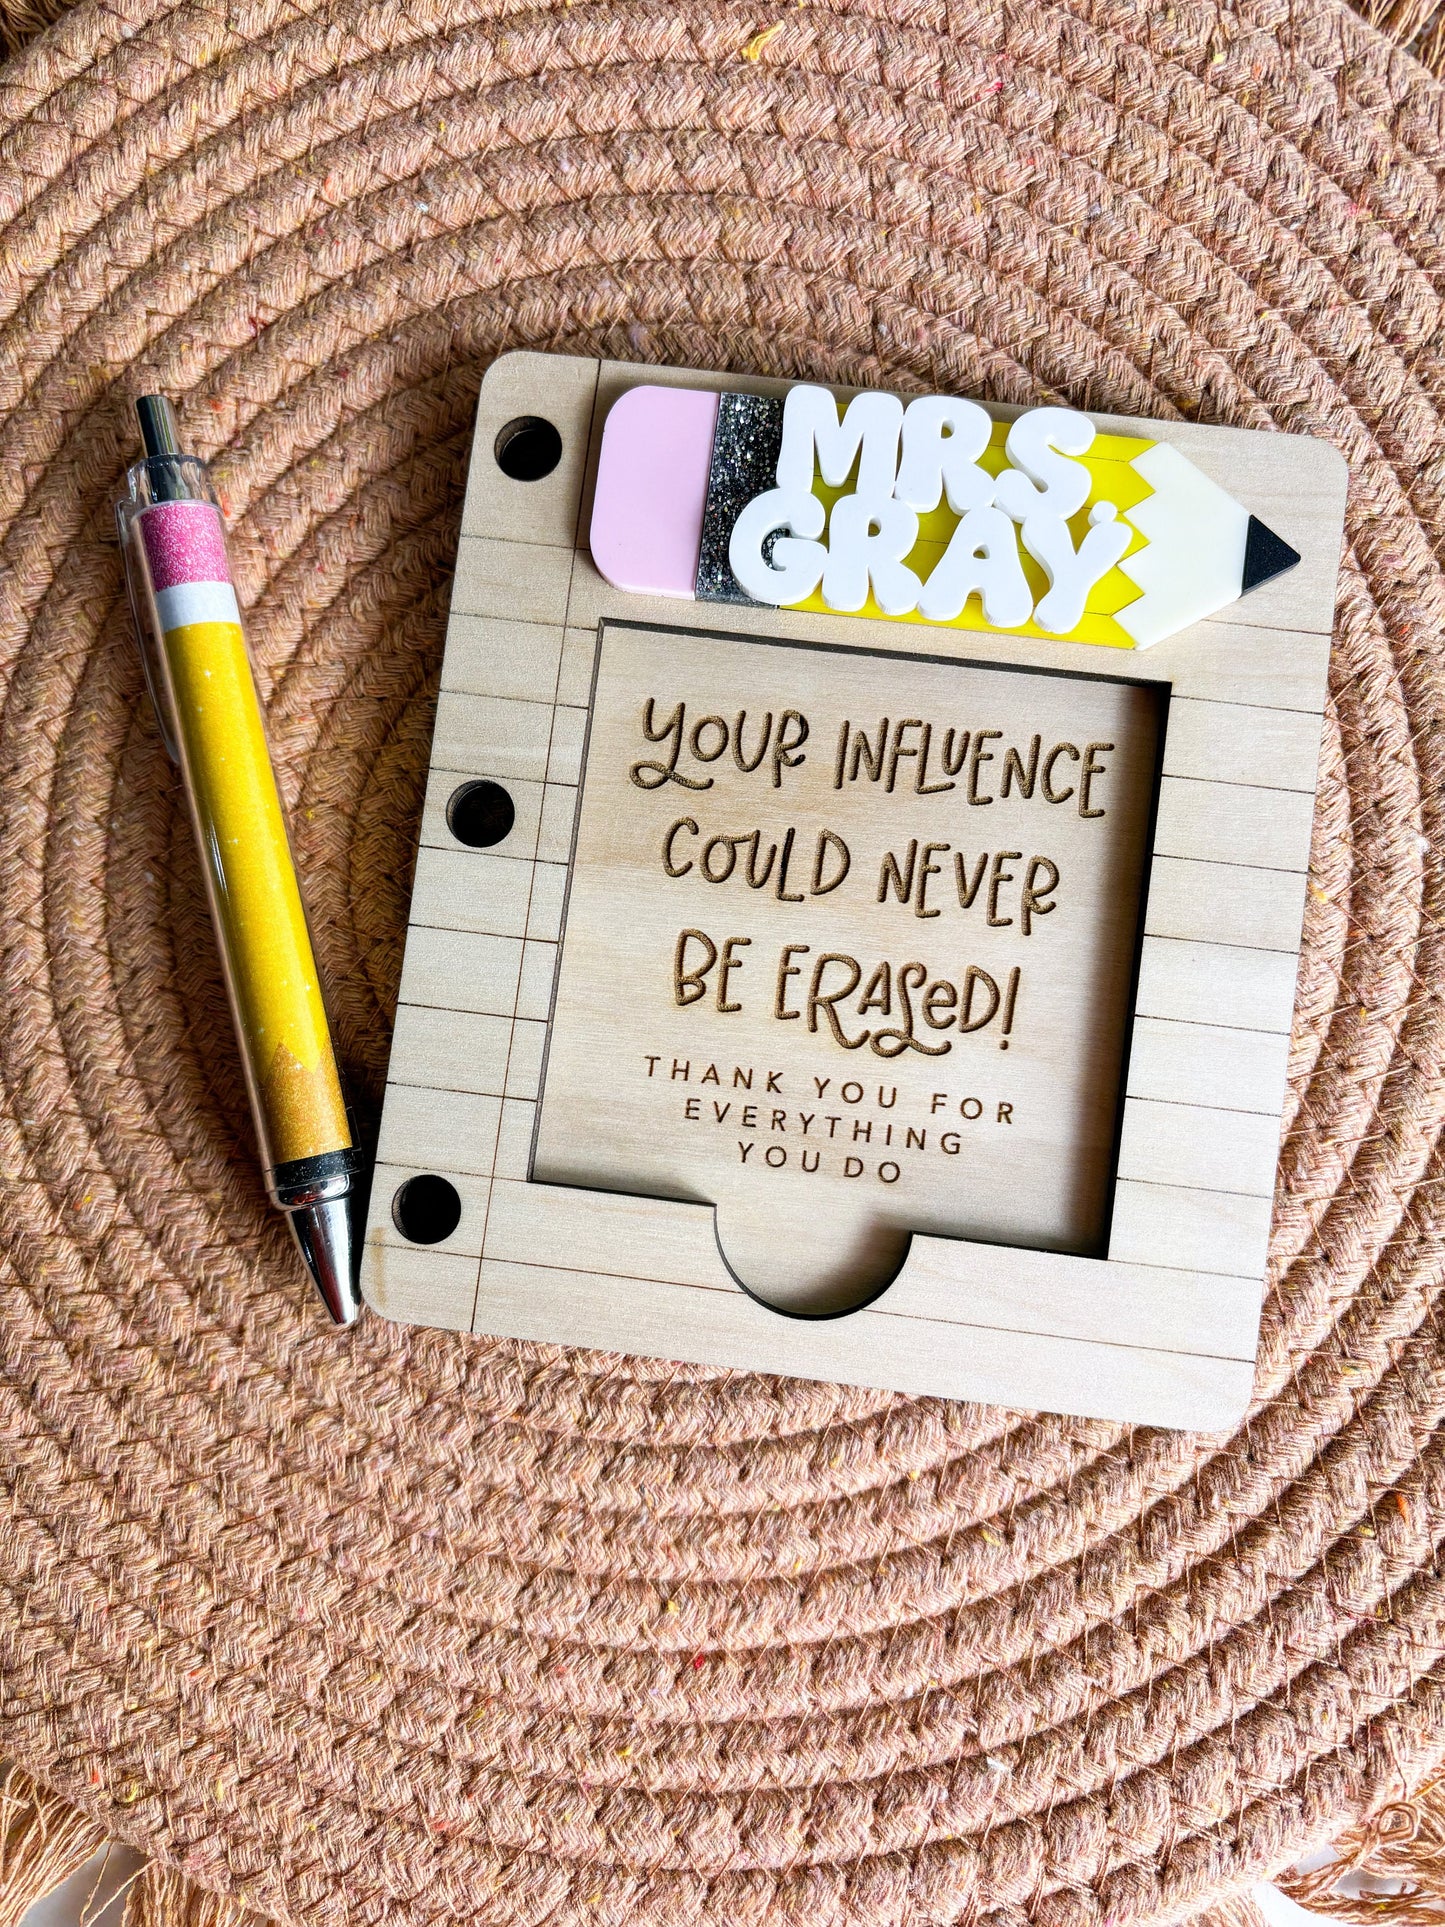 MRS.
GRAY
YOUR INFLUENCE
COULD NEVER
BE ERASED!
THANK YOU FOR
EVERYTHING
YOU DO